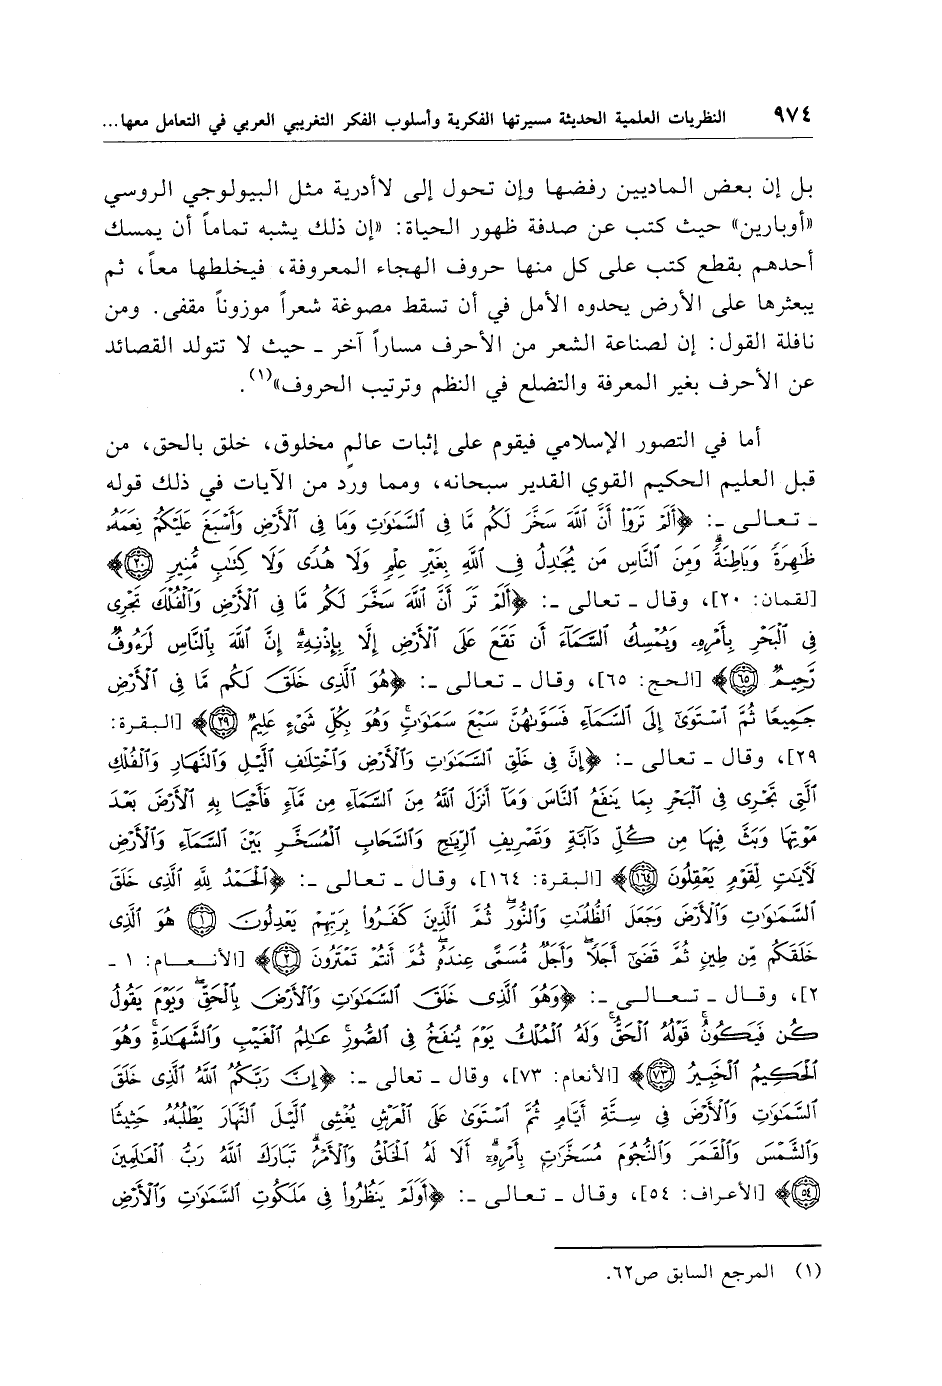 ٩٧٤ النظريات العلمية الحديثة مسيرتها الفكرية وأسلوب الفكر التغريبي العربي في التعامل معها...
بل إن بعض الماديين رفضها وإن تحول إلى لاأدرية مثل البيولوجي الروسي
«أوبارين» حيث كتب عن صدفة ظهور الحياة: «إن ذلك يشبه تماماً أن يمسك
أحدهم بقطع كتب على كل منها حروف الهجاء المعروفة، فيخلطها معاً، ثم
يبعثرها على الأرض يحدوه الأمل في أن تسقط مصوغة شعراً موزوناً مقفى. ومن
نافلة القول: إن لصناعة الشعر من الأحرف مساراً آخر - حيث لا تتولد القصائد
عن الأحرف بغير المعرفة والتضلع في النظم وترتيب الحروف»(١).
أما في التصور الإسلامي فيقوم على إثبات عالمٍ مخلوق، خلق بالحق، من
قبل العليم الحكيم القوي القدير سبحانه، ومما ورد من الآيات في ذلك قوله
- تعالى -: ﴿أَلَمْ تَرَوْا۟ أَنَّ ٱللَّهَ سَخَّرَ لَكُم مَّا فِى ٱلسَّمَٰوَٰتِ وَمَا فِى ٱلْأَرْضِ وَأَسْبَغَ عَلَيْكُمْ نِعَمَهُۥ
ظَٰهِرَةً وَبَاطِنَةً ۗ وَمِنَ ٱلنَّاسِ مَن يُجَٰدِلُ فِى ٱللَّهِ بِغَيْرِ عِلْمٍ وَلَا هُدًى وَلَا كِتَٰبٍ مُّنِيرٍ ٢٠﴾
[لقمان: ٢٠]، وقال - تعالى -: ﴿أَلَمْ تَرَ أَنَّ ٱللَّهَ سَخَّرَ لَكُم مَّا فِى ٱلْأَرْضِ وَٱلْفُلْكَ تَجْرِى
فِى ٱلْبَحْرِ بِأَمْرِهِۦ وَيُمْسِكُ ٱلسَّمَآءَ أَن تَقَعَ عَلَى ٱلْأَرْضِ إِلَّا بِإِذْنِهِۦٓ ۗ إِنَّ ٱللَّهَ بِٱلنَّاسِ لَرَءُوفٌ
رَّحِيمٌ ٦٥﴾ [الحج: ٦٥]، وقال - تعالى -: ﴿هُوَ ٱلَّذِى خَلَقَ لَكُم مَّا فِى ٱلْأَرْضِ
جَمِيعًا ثُمَّ ٱسْتَوَىٰٓ إِلَى ٱلسَّمَآءِ فَسَوَّىٰهُنَّ سَبْعَ سَمَٰوَٰتٍ ۚ وَهُوَ بِكُلِّ شَىْءٍ عَلِيمٌ ٢٩﴾ [البقرة:
٢٩]، وقال - تعالى -: ﴿إِنَّ فِى خَلْقِ ٱلسَّمَٰوَٰتِ وَٱلْأَرْضِ وَٱخْتِلَٰفِ ٱلَّيْلِ وَٱلنَّهَارِ وَٱلْفُلْكِ
ٱلَّتِى تَجْرِى فِى ٱلْبَحْرِ بِمَا يَنفَعُ ٱلنَّاسَ وَمَآ أَنزَلَ ٱللَّهُ مِنَ ٱلسَّمَآءِ مِن مَّآءٍ فَأَحْيَا بِهِ ٱلْأَرْضَ بَعْدَ
مَوْتِهَا وَبَثَّ فِيهَا مِن كُلِّ دَآبَّةٍ وَتَصْرِيفِ ٱلرِّيَٰحِ وَٱلسَّحَابِ ٱلْمُسَخَّرِ بَيْنَ ٱلسَّمَآءِ وَٱلْأَرْضِ
لَءَايَٰتٍ لِّقَوْمٍ يَعْقِلُونَ ١٦٤﴾ [البقرة: ١٦٤]، وقال - تعالى -: ﴿ٱلْحَمْدُ لِلَّهِ ٱلَّذِى خَلَقَ
ٱلسَّمَٰوَٰتِ وَٱلْأَرْضَ وَجَعَلَ ٱلظُّلُمَٰتِ وَٱلنُّورَ ۖ ثُمَّ ٱلَّذِينَ كَفَرُوا۟ بِرَبِّهِمْ يَعْدِلُونَ ١ هُوَ ٱلَّذِى
خَلَقَكُم مِّن طِينٍ ثُمَّ قَضَىٰٓ أَجَلًا ۖ وَأَجَلٌ مُّسَمًّى عِندَهُۥ ۖ ثُمَّ أَنتُمْ تَمْتَرُونَ ٢﴾ [الأنعام: ١ -
٢]، وقال - تعالى -: ﴿وَهُوَ ٱلَّذِى خَلَقَ ٱلسَّمَٰوَٰتِ وَٱلْأَرْضَ بِٱلْحَقِّ ۖ وَيَوْمَ يَقُولُ
كُن فَيَكُونُ ۚ قَوْلُهُ ٱلْحَقُّ ۚ وَلَهُ ٱلْمُلْكُ يَوْمَ يُنفَخُ فِى ٱلصُّورِ ۚ عَٰلِمُ ٱلْغَيْبِ وَٱلشَّهَٰدَةِ ۚ وَهُوَ
ٱلْحَكِيمُ ٱلْخَبِيرُ ٧٣﴾ [الأنعام: ٧٣]، وقال - تعالى -: ﴿إِنَّ رَبَّكُمُ ٱللَّهُ ٱلَّذِى خَلَقَ
ٱلسَّمَٰوَٰتِ وَٱلْأَرْضَ فِى سِتَّةِ أَيَّامٍ ثُمَّ ٱسْتَوَىٰ عَلَى ٱلْعَرْشِ يُغْشِى ٱلَّيْلَ ٱلنَّهَارَ يَطْلُبُهُۥ حَثِيثًا
وَٱلشَّمْسَ وَٱلْقَمَرَ وَٱلنُّجُومَ مُسَخَّرَٰتٍۭ بِأَمْرِهِۦٓ ۗ أَلَا لَهُ ٱلْخَلْقُ وَٱلْأَمْرُ ۗ تَبَارَكَ ٱللَّهُ رَبُّ ٱلْعَٰلَمِينَ
٥٤﴾ [الأعراف: ٥٤]، وقال - تعالى -: ﴿أَوَلَمْ يَنظُرُوا۟ فِى مَلَكُوتِ ٱلسَّمَٰوَٰتِ وَٱلْأَرْضِ
(١) المرجع السابق ص٦٢.